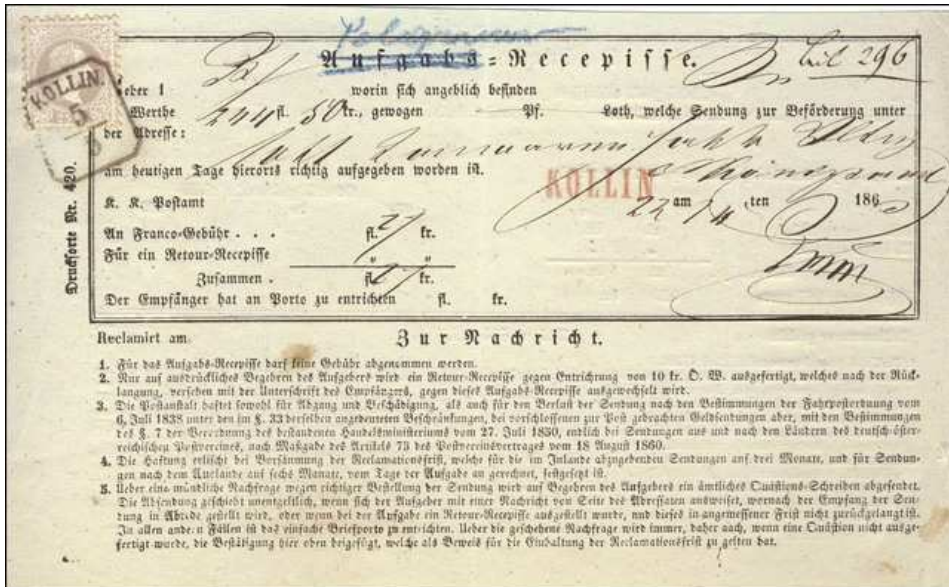 Aufgabs-Recepisse.
296
KOLLIN.
5
Ueber 1 worin sich angeblich befinden
Werthe 244 fl. 50 kr., gewogen Pf. Loth, welche Sendung zur Beförderung unter
der Adresse:
am heutigen Tage hierorts richtig aufgegeben worden ist.
KOLLIN
K. K. Postamt 22 am ten 186
An Franco-Gebühr . . . fl. 27 kr.
Für ein Retour-Recepisse " "
Zusammen . fl. 27 kr.
Der Empfänger hat an Porto zu entrichten fl. kr.
Drucksorte Nr. 420.
Reclamirt am Zur Nachricht.
1. Für das Aufgabs-Recepisse darf keine Gebühr abgenommen werden.
2. Nur auf ausdrückliches Begehren des Aufgebers wird ein Retour-Recepisse gegen Entrichtung von 10 kr. Ö. W. ausgefertigt, welches nach der Rück-
langung, versehen mit der Unterschrift des Empfängers, gegen dieses Aufgabs-Recepisse ausgewechselt wird.
3. Die Postanstalt haftet sowohl für Abgang und Beschädigung, als auch für den Verlust der Sendung nach den Bestimmungen der Fahrpostordnung vom
6. Juli 1838 unter den im §. 33 derselben angedeuteten Beschränkungen, bei vorschlossenen zur Post gebrachten Geldsendungen aber, mit den Bestimmungen
des §. 7 der Verordnung des bestandenen Handelsministeriums vom 27. Juli 1850, endlich bei Sendungen aus und nach den Ländern des deutsch-öster-
reichischen Postvereines, nach Maßgabe des Artikels 73 des Postvereinsvertrages vom 18 August 1860.
4. Die Haftung erlischt bei Versäumung der Reclamationsfrist, welche für die im Inlande abzugebenden Sendungen auf drei Monate, und für Sendun-
gen nach dem Auslande auf sechs Monate, vom Tage der Aufgabe an gerechnet, festgesetzt ist.
5. Ueber eine mündliche Nachfrage wegen richtiger Bestellung der Sendung wird auf Begehren des Aufgebers ein ämtliches Quästions-Schreiben abgesendet.
Die Absendung geschieht unentgeltlich, wenn sich der Aufgeber mit einer Nachricht von Seite des Adressaten ausweiset, wornach der Empfang der Sen-
dung in Abrede gestellt wird, oder wenn bei der Aufgabe ein Retour-Recepisse ausgestellt wurde, und dieses in angemessener Frist nicht zurückgelangt ist.
In allen anderen Fällen ist das einfache Briefporto zu entrichten. Ueber die geschehene Nachfrage wird immer, daher auch, wenn eine Quästion nicht ausge-
fertigt wurde, die Bestätigung hier oben beigefügt, welche als Beweis für die Einhaltung der Reclamationsfrist zu gelten hat.